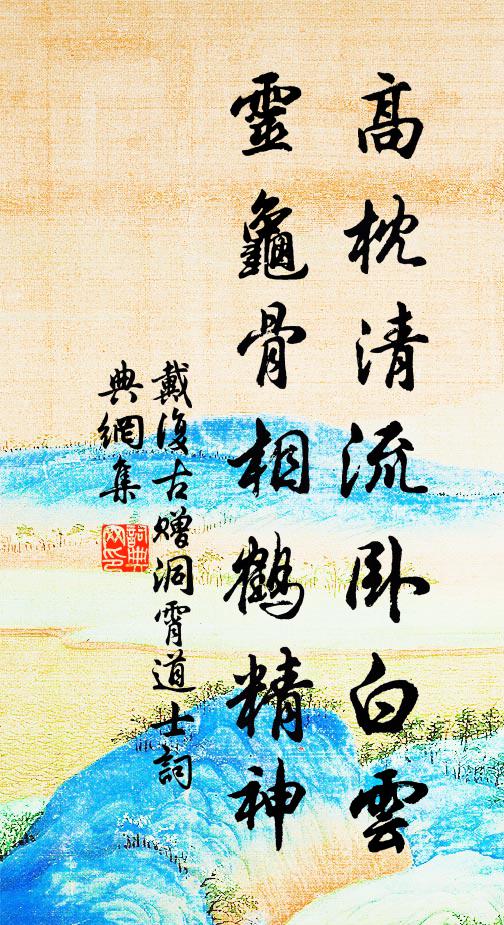 高枕清流卧白雲
靈龜骨相鶴精神
戴復古赠洞霄道士詞
典網集